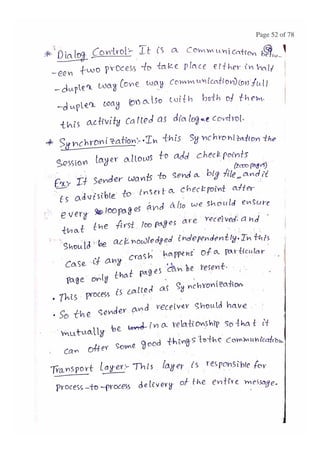 Page 52 of 78
* Dialog Control:- It is a communication betw-
-een two process to take place either in half
-duplex way (one way communication) (or) full
-duplex way (or) also with both of them.
this activity called as dialogue control.
* Synchronization:- In this synchronization the
session layer allows to add checkpoints
(2000 pages)
Ex:- If sender wants to send a big file and it
is advisible to insert a checkpoint after
every 100 pages and also we should ensure
that the first 100 pages are received and
should be acknowledged independently. In this
case if any crash happens of a particular
page only that pages can be resent.
• This process is called as synchronization
• So the sender and receiver should have
mutually be in a relationship so that it
can offer some good things to the communication
Transport layer:- This layer is responsible for
process-to-process delivery of the entire message.